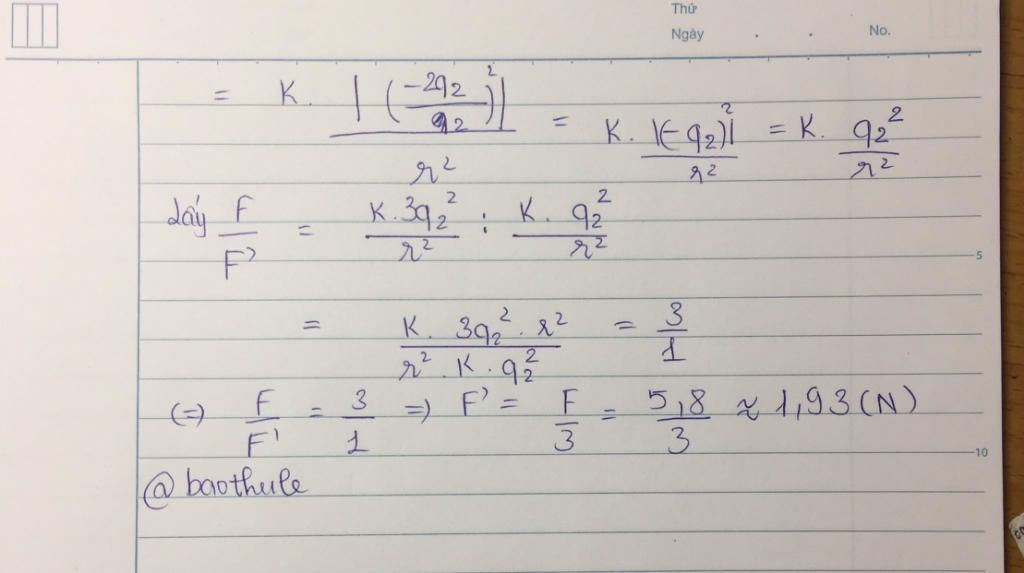 Thứ
Ngày . . No.
= K. |(-2q₂/q₂)²|/r² = K. |(-q₂)²|/r² = K. q₂²/r²
lấy F/F' = K.3q₂²/r² : K. q₂²/r²
5
= K. 3q₂² . r²/r² . K. q₂² = 3/1
(=) F/F' = 3/1 => F' = F/3 = 5,8/3 ≈ 1,93 (N)
10
@ baothule